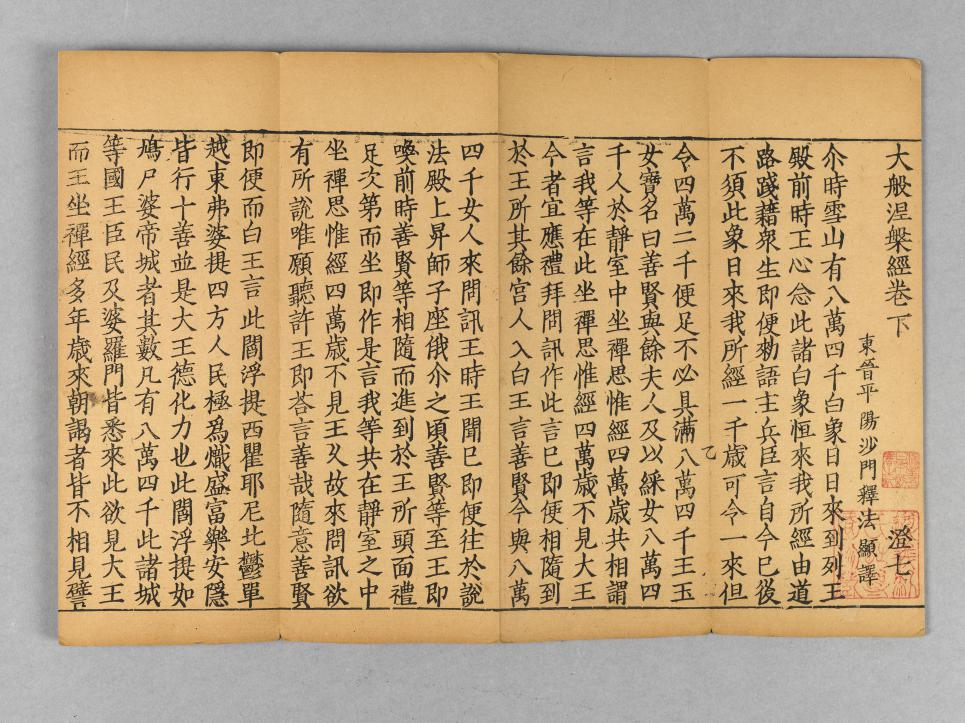 大般涅槃經卷下 澄七
東晉平陽沙門釋法顯譯
尒時雪山有八萬四千白象日日來到列王
殿前時王心念此諸白象恒來我所經由道
路踐藉衆生即便勑語主兵臣言自今已後
不須此象日來我所經一千歲可令一來但
乙
令四萬二千便足不必具滿八萬四千王玉
女寶名曰善賢與餘夫人及以綵女八萬四
千人於靜室中坐禪思惟經四萬歲共相謂
言我等在此坐禪思惟經四萬歲不見大王
今者宜應禮拜問訊作此言已即便相隨到
於王所其餘宮人入白王言善賢今與八萬
四千女人來問訊王時王聞已即便往於說
法殿上昇師子座俄尒之頃善賢等至王即
喚前時善賢等相隨而進到於王所頭面禮
足次第而坐即作是言我等共在靜室之中
坐禪思惟經四萬歲不見王久故來問訊欲
有所說唯願聽許王即荅言善哉隨意善賢
即便而白王言此閻浮提西瞿耶尼北鬱單
越東弗婆提四方人民極爲熾盛富樂安隱
皆行十善並是大王德化力也此閻浮提如
鳩尸婆帝城者其數凡有八萬四千此諸城
等國王臣民及婆羅門皆悉來此欲見大王
而王坐禪經多年歲來朝謁者皆不相見譬